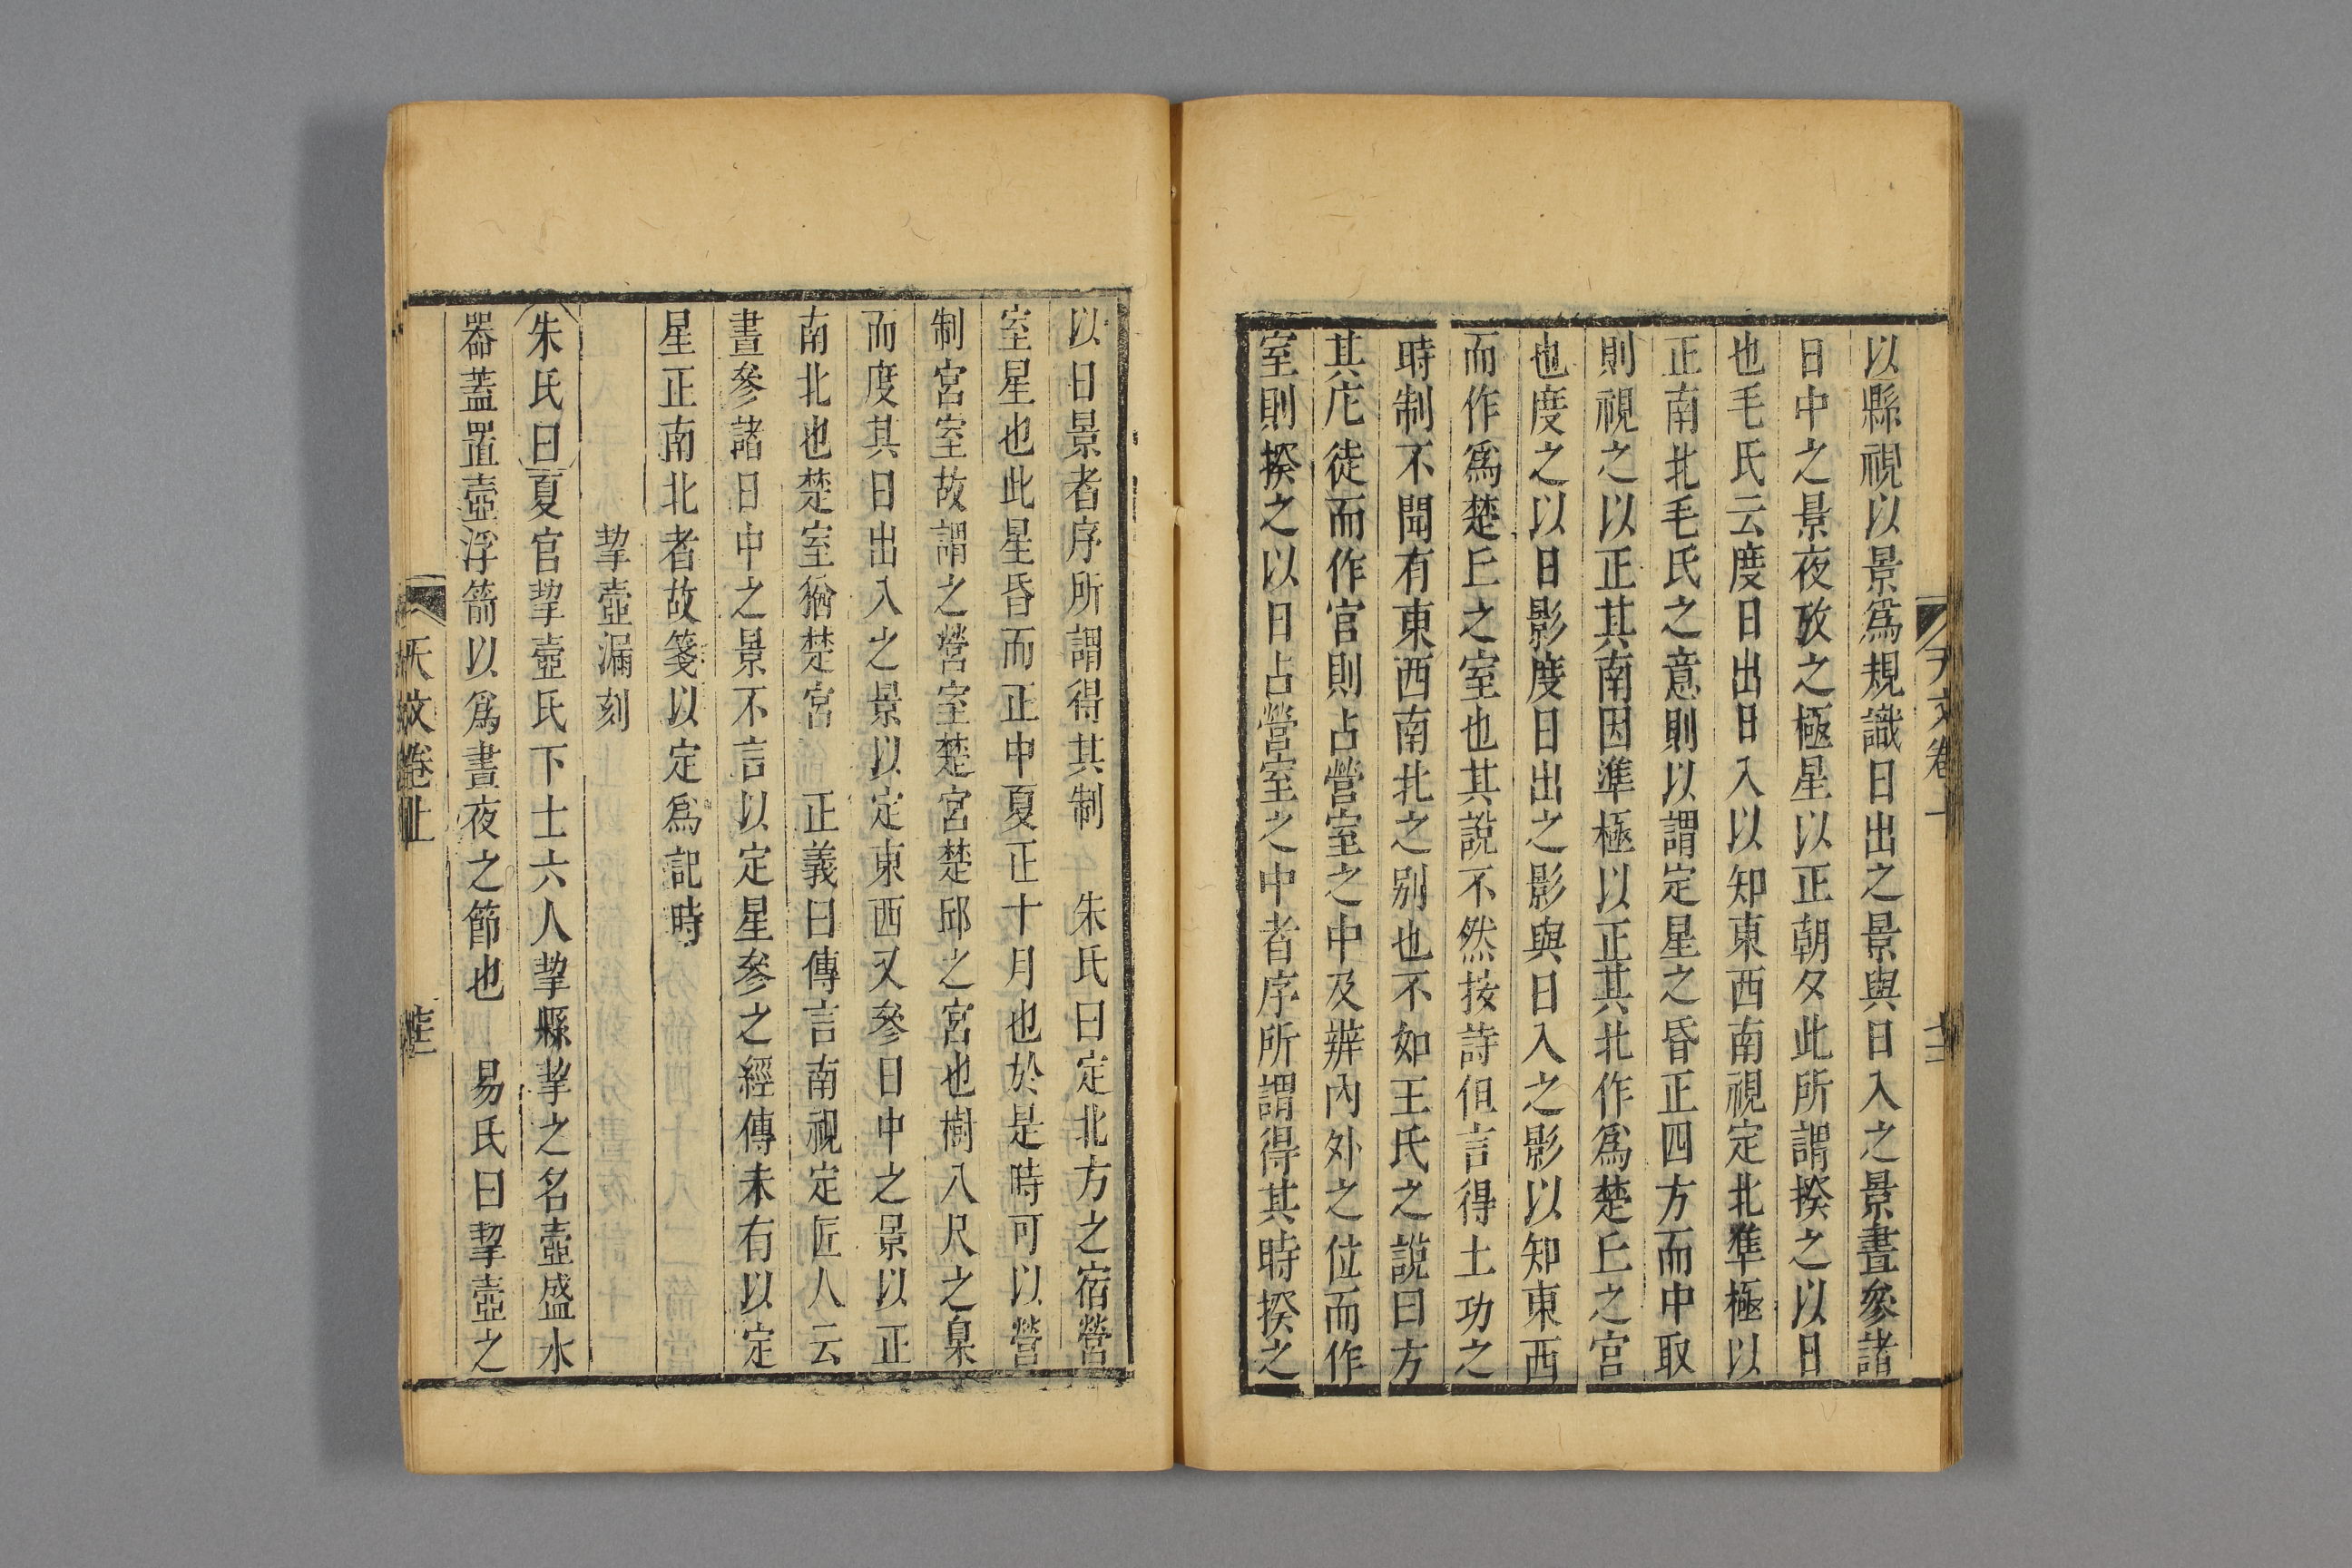 以縣視以景爲規識日出之景與日入之景晝參諸
日中之景夜攷之極星以正朝夕此所謂揆之以日
也毛氏云度日出日入以知東西南視定北準極以
正南北毛氏之意則以謂定星之昏正四方而中取
則視之以正其南因準極以正其北作爲楚丘之宫
也度之以日影度日出之影與日入之影以知東西
而作爲楚丘之室也其說不然按詩但言得土功之
時制不聞有東西南北之别也不如王氏之說曰方
其庀徒而作官則占營室之中及辨內外之位而作
室則揆之以日占營室之中者序所謂得其時揆之
以日景者序所謂得其制 朱氏曰定北方之宿營
室星也此星昏而正中夏正十月也於是時可以營
制宮室故謂之營室楚宮楚邱之宮也樹八尺之臬
而度其日出入之景以定東西又參日中之景以正
南北也楚室猶楚宮 正義曰傳言南視定匠人云
晝參諸日中之景不言以定星參之經傳未有以定
星正南北者故箋以定爲記時
挈壺漏刻
朱氏曰夏官挈壺氏下士六人挈縣挈之名壺盛水
器蓋置壺浮箭以爲晝夜之節也 易氏曰挈壺之